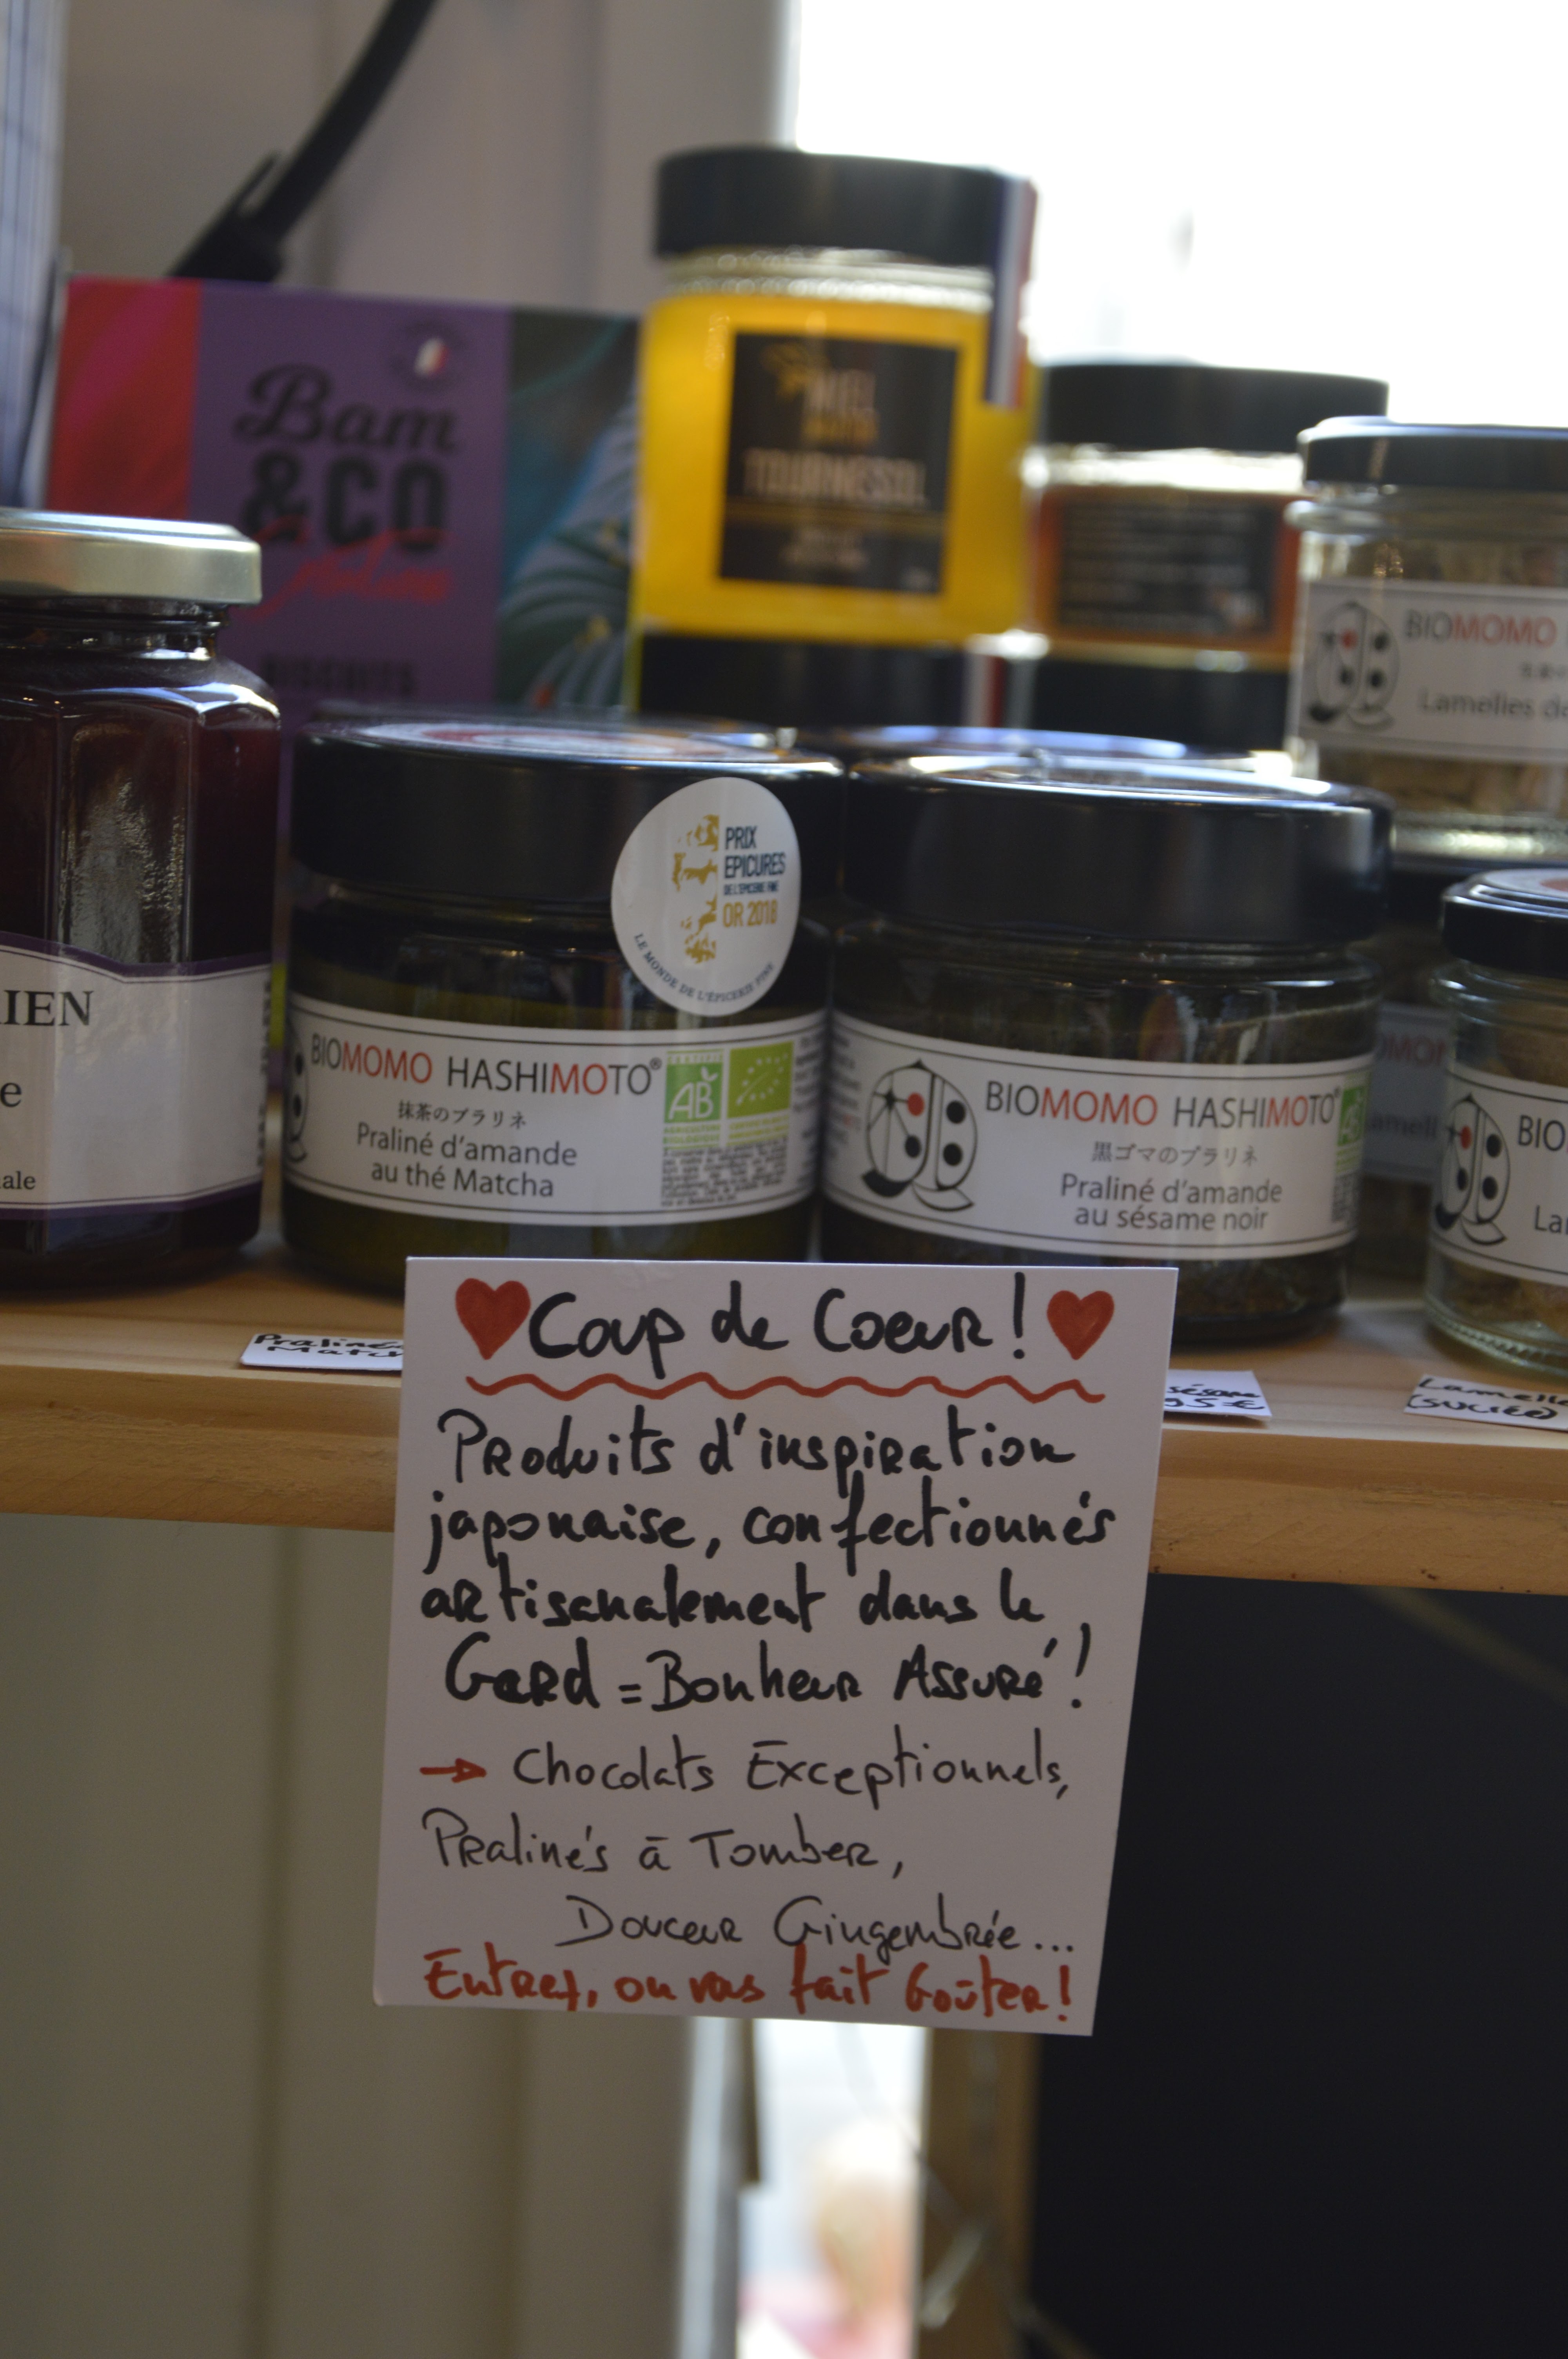 Bam
&CO
BISCUITS
MIEL
TOURNESOL
BIOMOMO
Lamelles de
IEN
e
ale
PRIX
EPICURES
DE L'ÉPICERIE FINE
OR 2018
LE MONDE DE L'ÉPICERIE FINE
BIOMOMO HASHIMOTO®
抹茶のプラリネ
Praliné d'amande
au thé Matcha
AB
BIOMOMO HASHIMOTO®
黒ゴマのプラリネ
Praliné d'amande
au sésame noir
BIO
La
Coup de Coeur !
Produits d'inspiration
japonaise, confectionnés
artisanalement dans le
Gard = Bonheur Assuré !
→ Chocolats Exceptionnels,
Pralinés à Tomber,
Douceur Gingembrée...
Entrez, on vous fait Goûter !
Praliné
Match
sésame
95€
Lamelle
(sucrée)